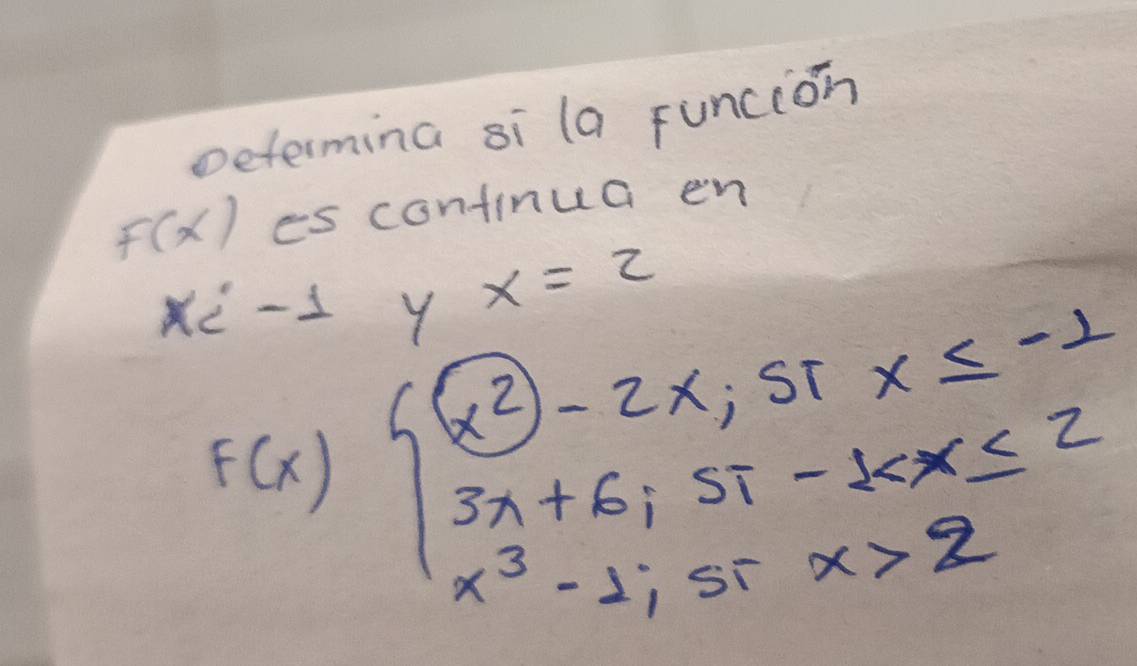 Determina si la Función
F(x) es continua en
x¿ -1 y x = 2
x² - 2x; si x ≤ -1
F(x) { 3x + 6; si -1<x≤ 2
x³ - 1; si x > 2